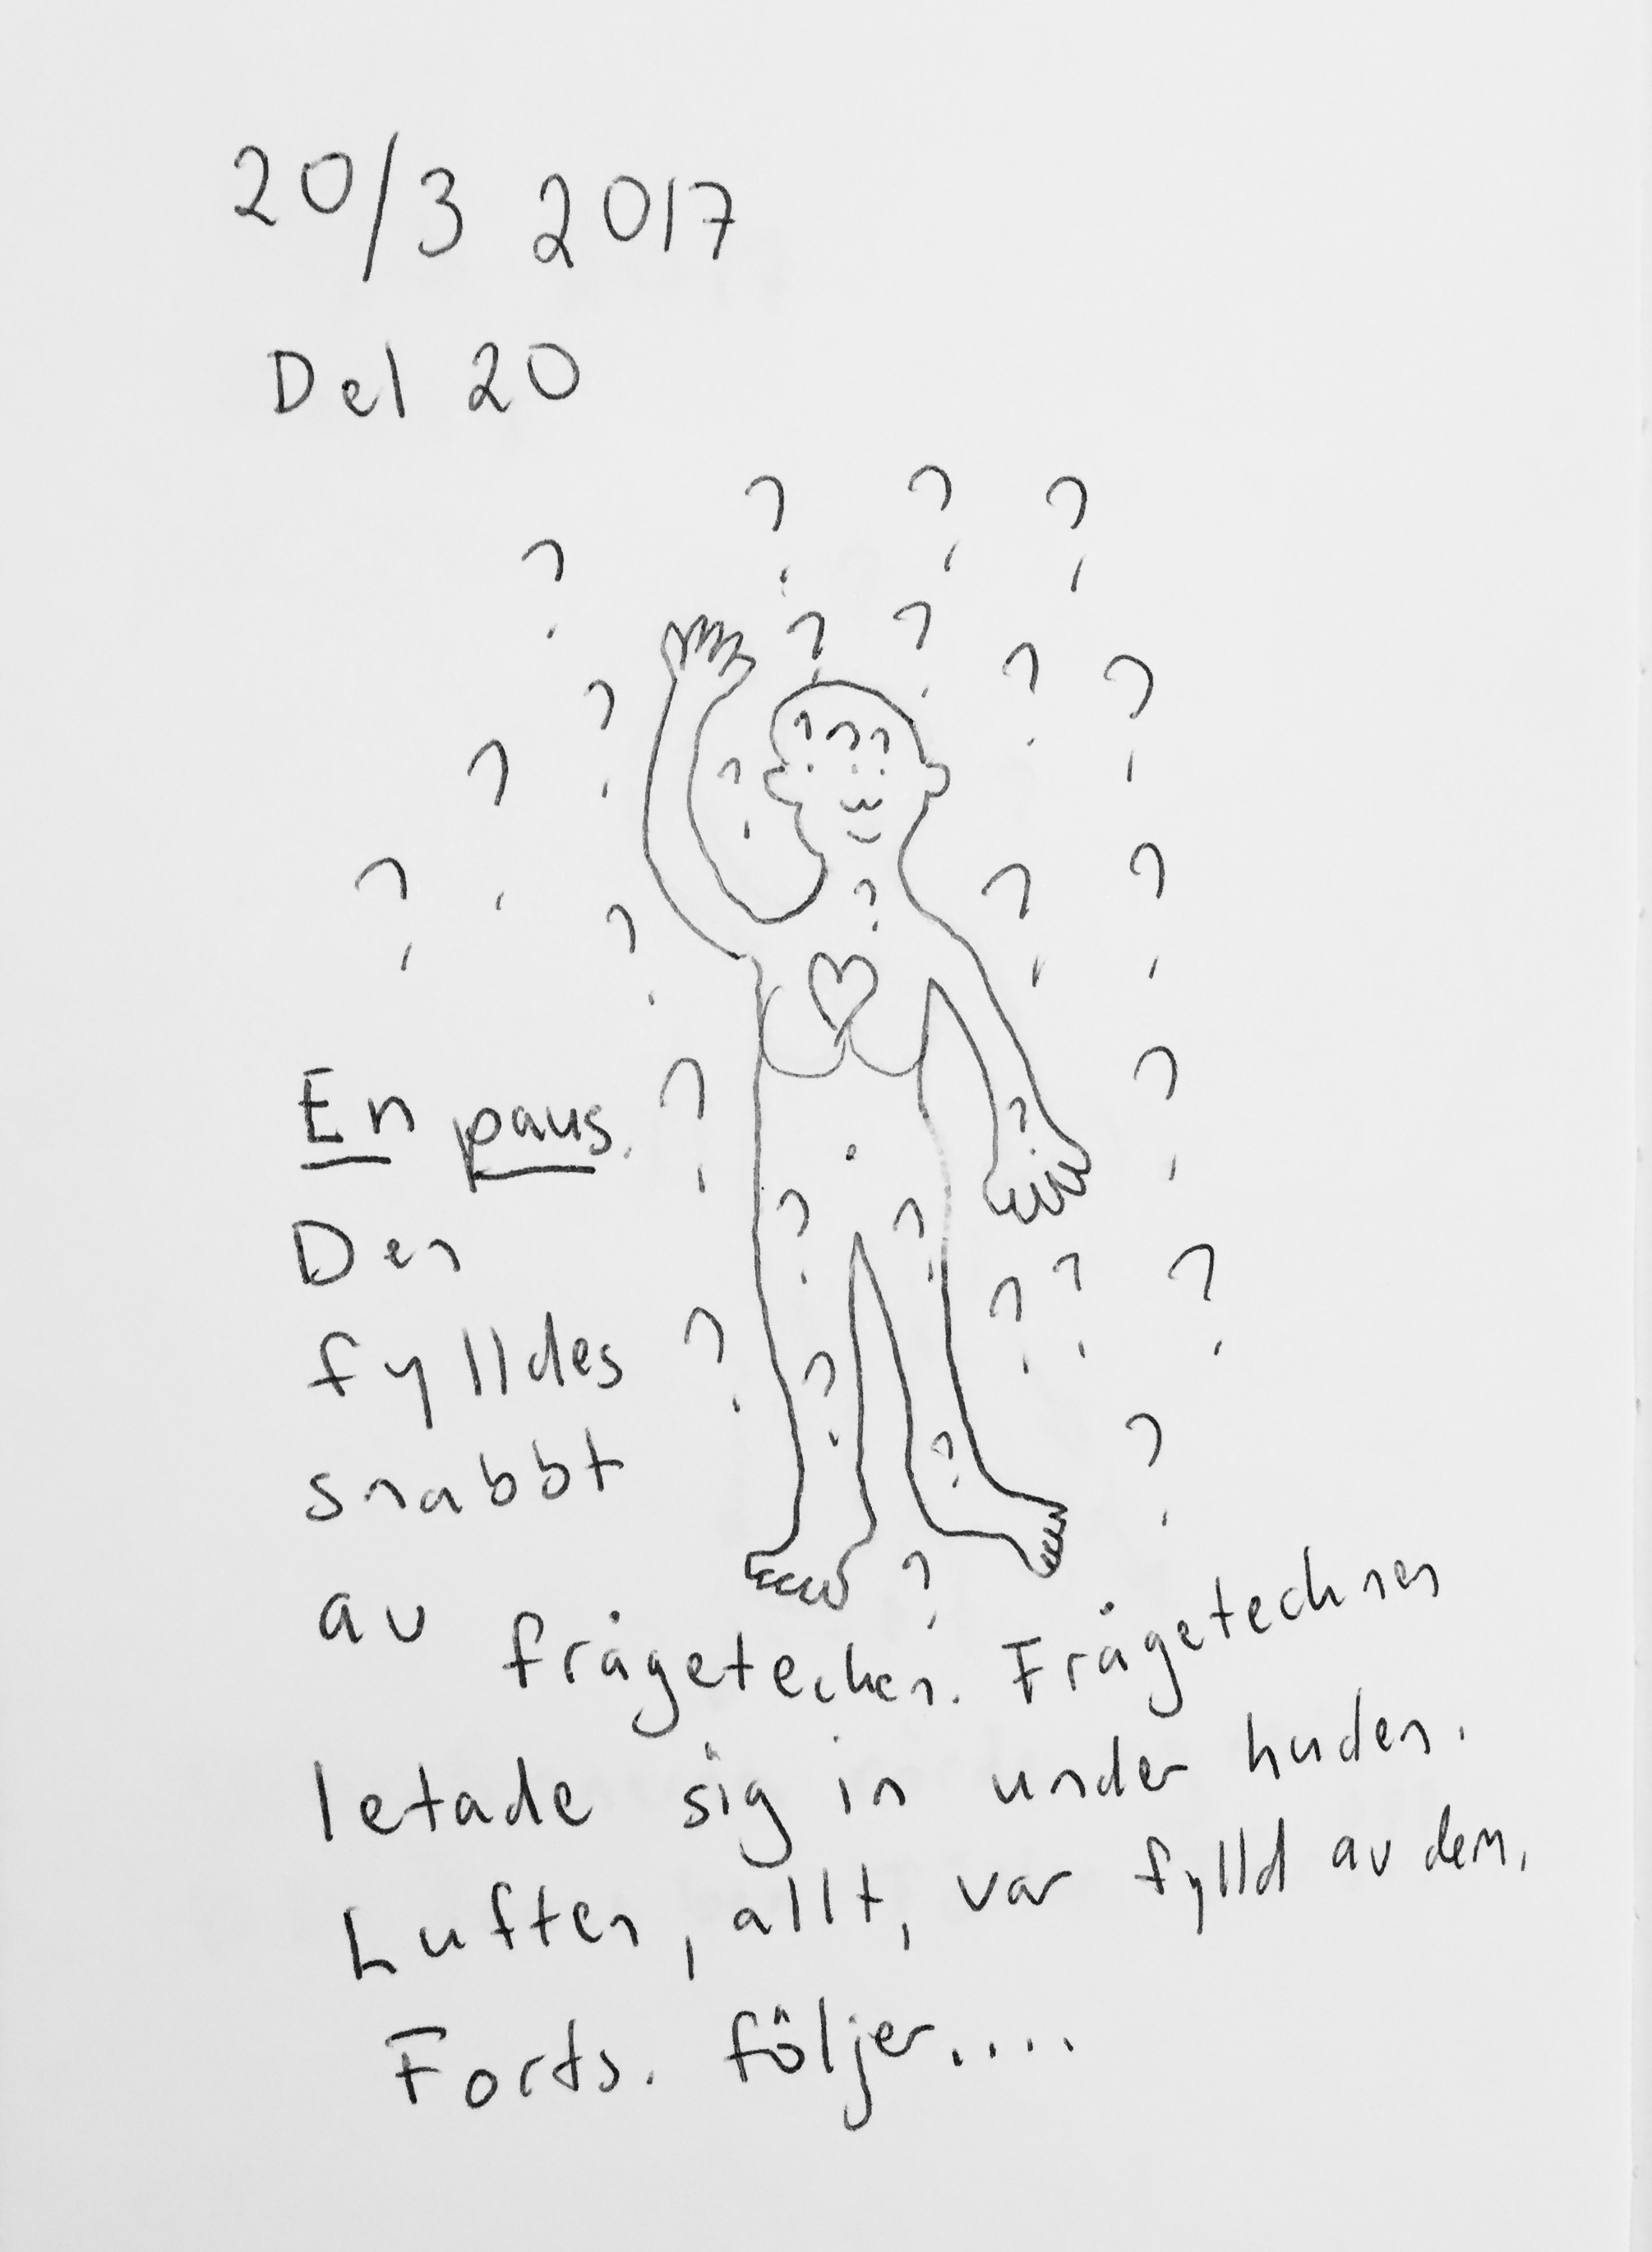 20/3 2017
Del 20
En paus.
Den
fylldes
snabbt
av frågetecken. Frågetecknen
letade sig in under huden.
Luften, allt, var fylld av dem.
Forts. följer....